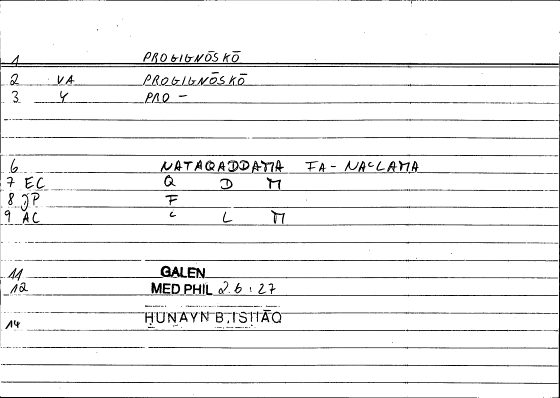 1 PROGIGNŌSKŌ
2 VA PROGIGNŌSKŌ
3 Y PRO -
6 NATAQADDAMA FA - NAcLAMA
7 EC Q D M
8 JP F
9 AC c L M
11 GALEN
12 MED PHIL 2.6 : 27
14 HUNAYN B, ISHĀQ